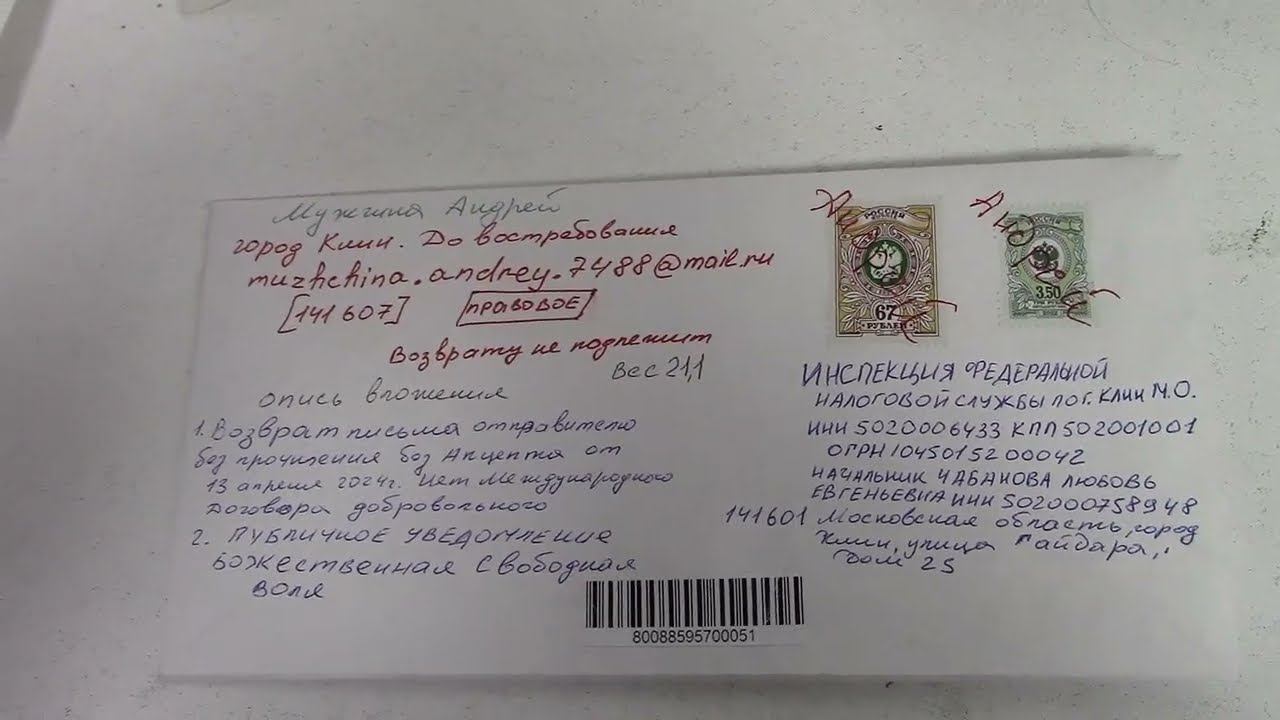 Мужчина Андрей
город Клин. До востребования
muzhchina.andrey.7488@mail.ru
[141607] ПРАВОВОЕ
Возврату не подлежит
Вес 21,1
опись вложения
1. Возврат письма отправителю
без прочтения без Акцепта от
13 апреля 2024г. Нет Международного
Договора добровольного
2. ПУБЛИЧНОЕ УВЕДОМЛЕНИЕ
БОЖЕСТВЕННАЯ Свободная
воля
РОССИЯ
67
РУБЛЕЙ
Андрей
РОССИЯ
3.50
Андрей
ИНСПЕКЦИЯ ФЕДЕРАЛЬНОЙ
НАЛОГОВОЙ СЛУЖБЫ ПО Г. КЛИН М.О.
ИНН 5020006433 КПП 502001001
ОГРН 1045015200042
НАЧАЛЬНИК ЧАБАНОВА ЛЮБОВЬ
ЕВГЕНЬЕВНА ИНН 502000758948
141601 Московская область, город
Клин, улица Гайдара,
Дом 25
80088595700051